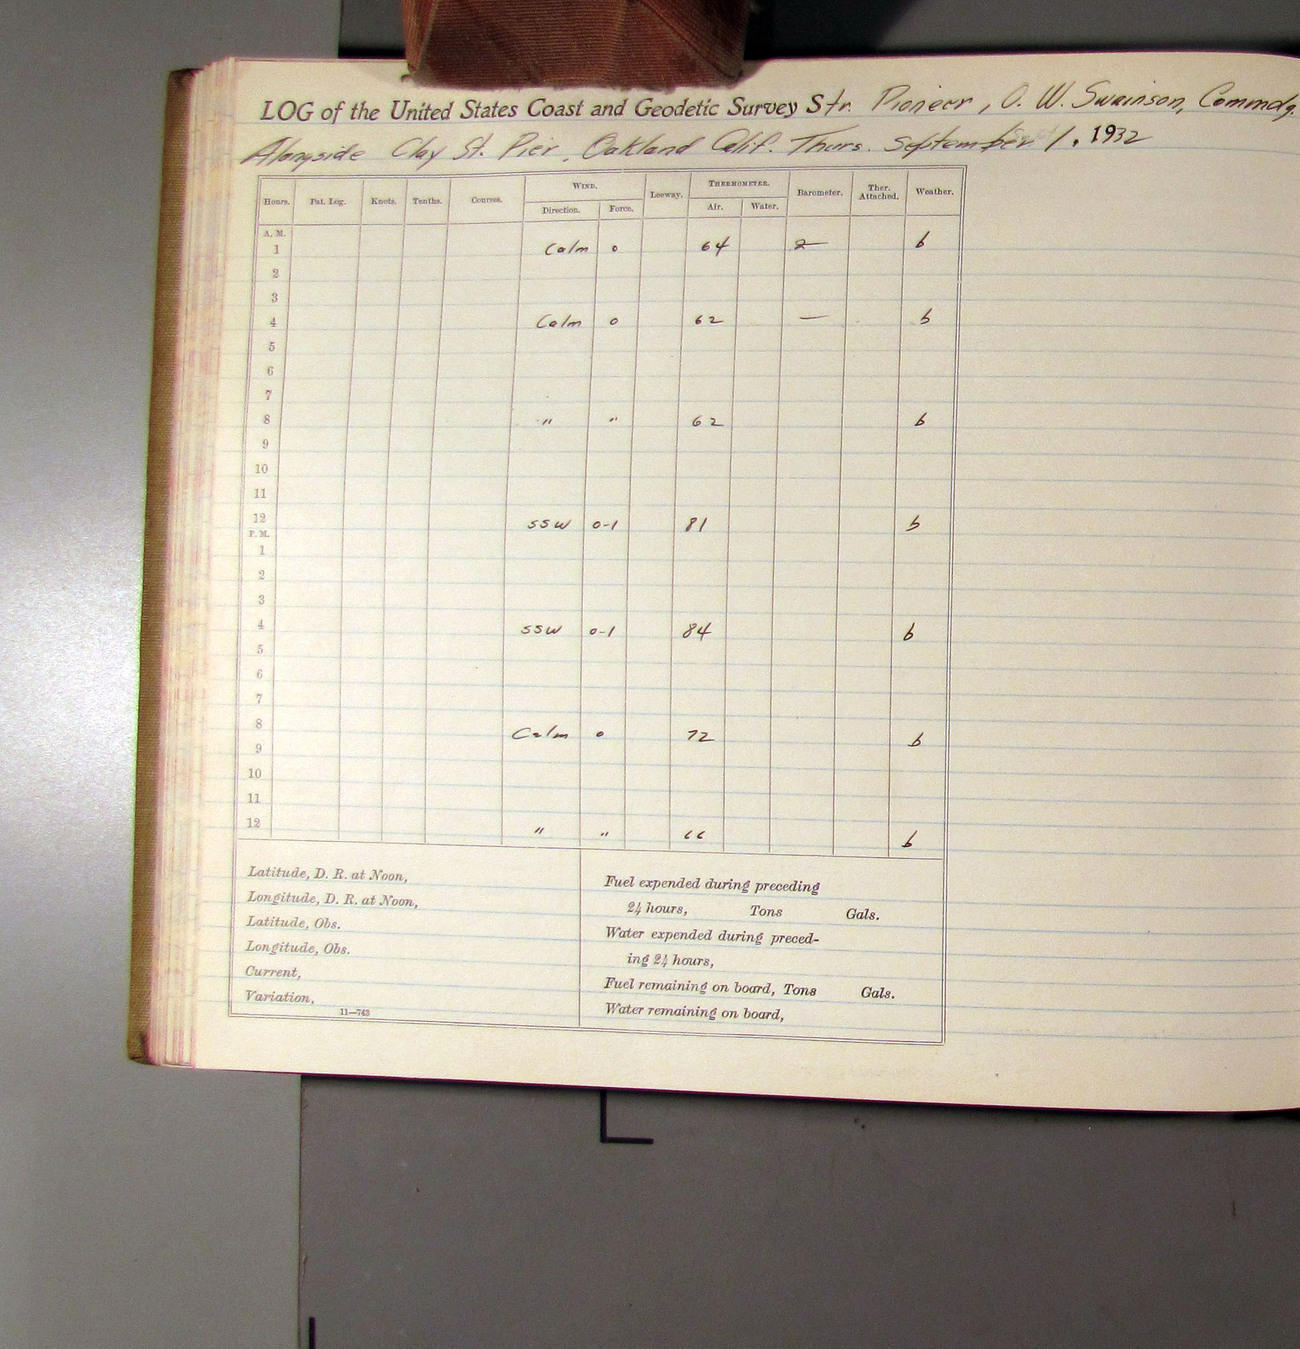 LOG of the United States Coast and Geodetic Survey Str. Pioneer, O. W. Swainson, Commdg.
Alongside Clay St. Pier, Oakland Calif. Thurs. September 1, 1932
Hours. Pat. Log. Knots. Tenths. Courses. WIND. Leeway. THERMOMETER. Barometer. Ther. Attached. Weather.
Direction. Force. Air. Water.
A. M.
1 Calm 0 64 b
2
3
4 Calm 0 62 — b
5
6
7
8 " " 62 b
9
10
11
12 SSW 0-1 81 b
P. M.
1
2
3
4 SSW 0-1 84 b
5
6
7
8 Calm 0 72 b
9
10
11
12 " " 66 b
Latitude, D. R. at Noon,
Longitude, D. R. at Noon,
Latitude, Obs.
Longitude, Obs.
Current,
Variation,
11—743
Fuel expended during preceding
24 hours, Tons Gals.
Water expended during preced-
ing 24 hours,
Fuel remaining on board, Tons Gals.
Water remaining on board,